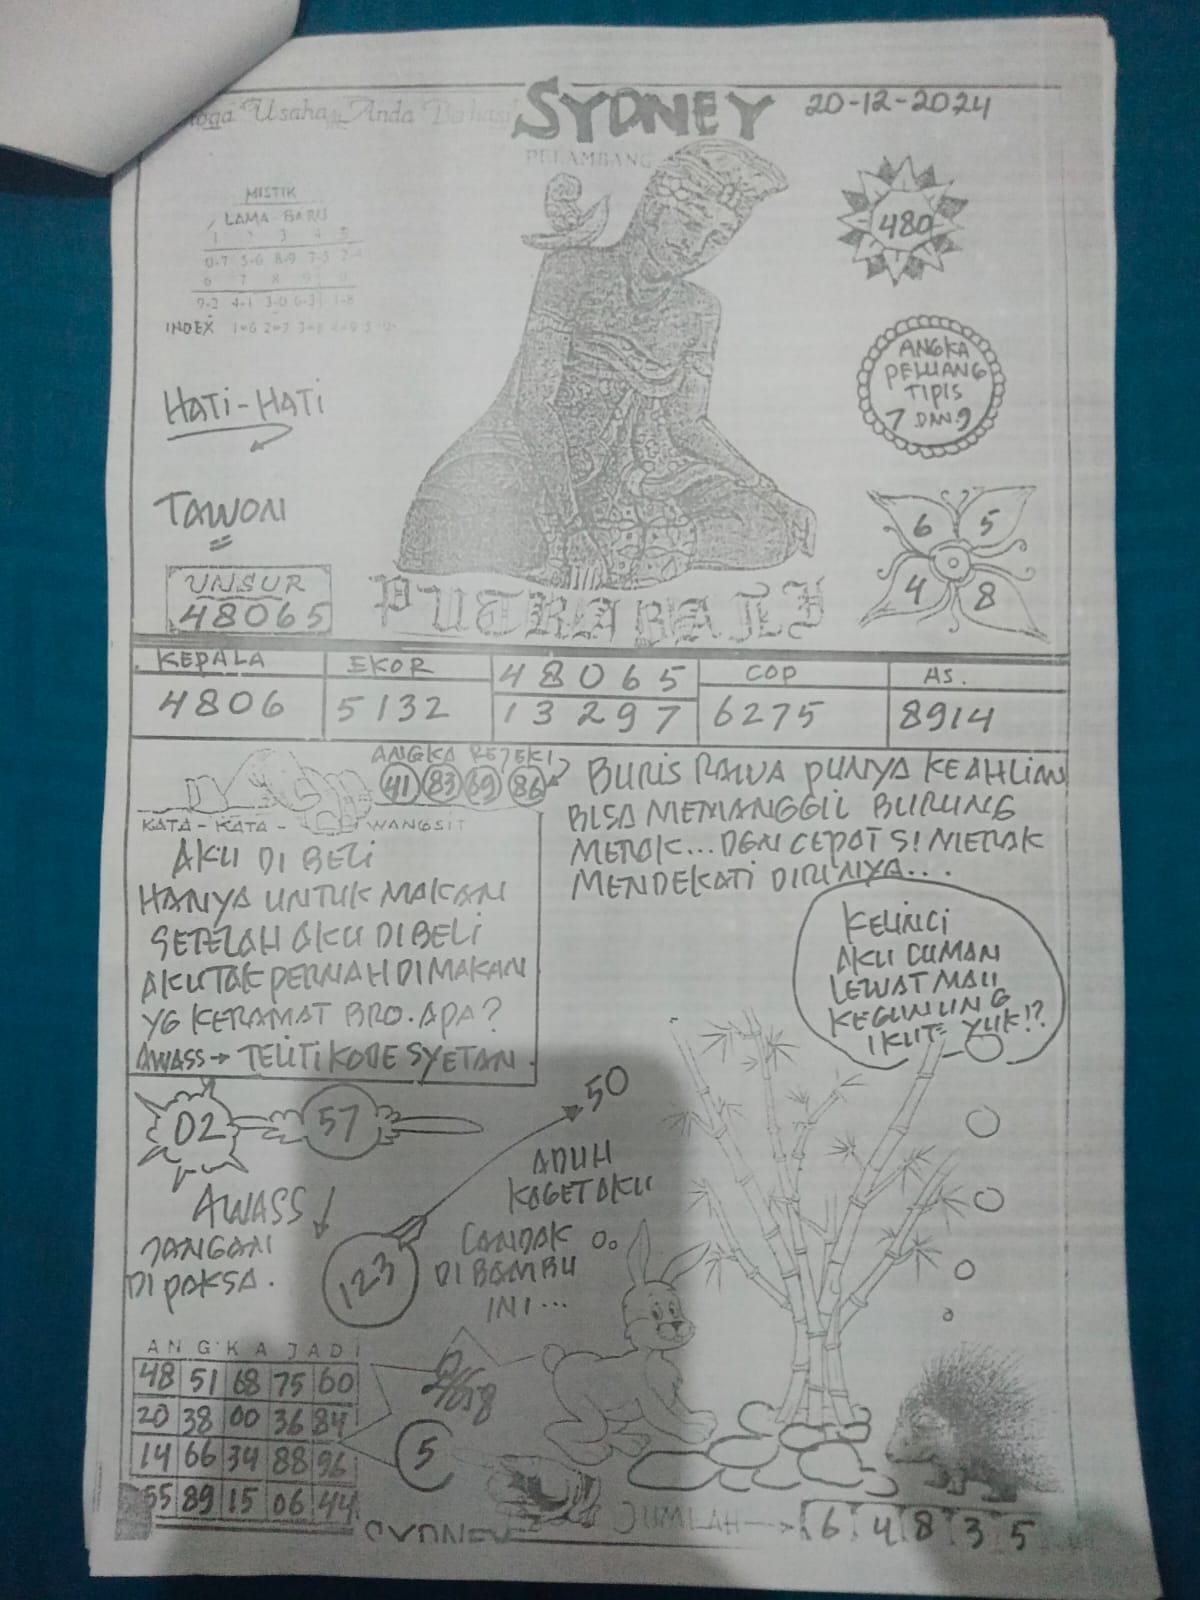 Usaha Anda
SYDNEY
20-12-2024
PELAMBANG
MISTIK
LAMA - BARU
1 2 3 4 5
0-7 5-6 8-9
6 7 8 9
9-2 4-1 3-0 6-3 1-8
INDEX 1=6 2=7
480
ANGKA
PELUANG
TIPIS
7 DAN 9
HATI-HATI
TAWON
UNSUR
48065
6 5
4 8
PUTRA BALI
KEPALA
4806
EKOR
5132
48065
13297
COP
6275
AS.
8914
ANGKA REJEKI
41 83 69 86
KATA - KATA - WANGSIT
AKU DI BELI
HANYA UNTUK MAKAN
SETELAH AKU DI BELI
AKU TAK PERNAH DI MAKAN
YG KERAMAT BRO. APA?
AWASS → TELITI KODE SYETAN.
BURIS RAWA PUNYA KEAHLIAN
BISA MEMANGGIL BURUNG
MERAK... DGN CEPAT SI MERAK
MENDEKATI DIRINYA...
KELINCI
AKU CUMAN
LEWAT MAU
KEGUNUNG
IKUT YUK!?
02 57
50
AWASS
JANGAN
DI PAKSA.
123
ADUH
KAGET AKU
LANDAK
DI BAMBU
INI...
ANGKA JADI
48 51 68 75 60
20 38 00 36 84
14 66 34 88 96
55 89 15 06 44
5
SYDNEY
JUMLAH → 6 4 8 3 5